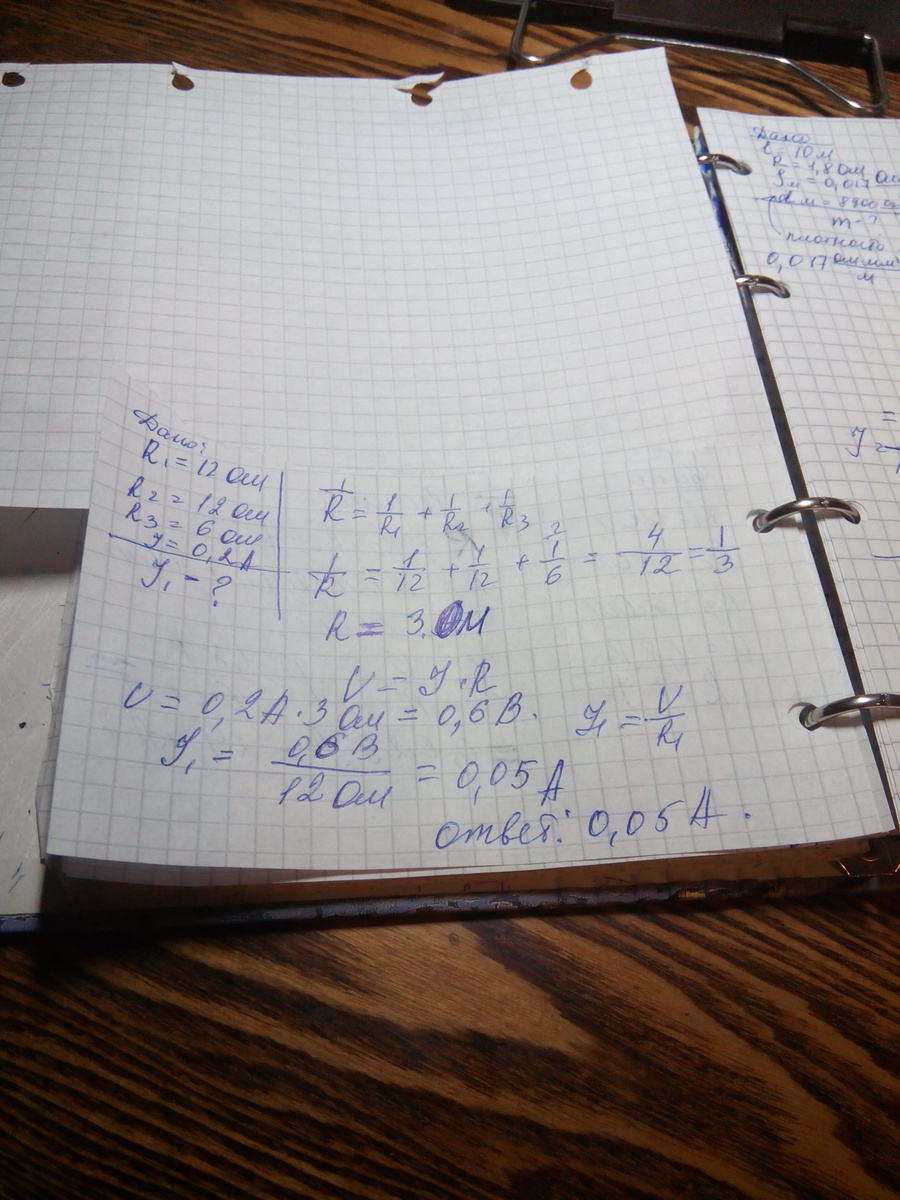 Дано:
R₁ = 12 Ом
R₂ = 12 Ом
R₃ = 6 Ом
I = 0,2А
I₁ - ?
1/R = 1/R₁ + 1/R₂ + 1/R₃
1/R = 1/12 + 1/12 + 1/6 2 = 4/12 = 1/3
R = 3 Ом
U = I · R
U = 0,2А · 3 Ом = 0,6 В.
I₁ = U/R₁
I₁ = 0,6 В/12 Ом = 0,05 А
ответ: 0,05 А.
Дано
l = 10 м
R = 1,8 Ом
m - ?
плотность
0,017 Ом мм²/м